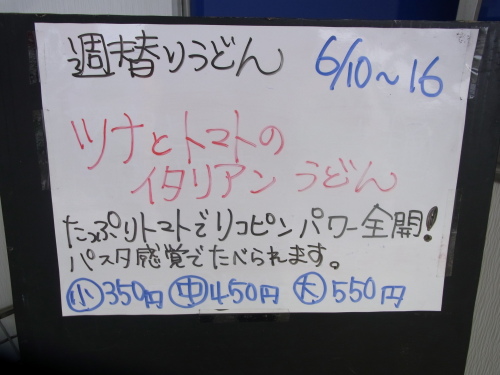 週替りうどん 6/10～16
ツナとトマトの
イタリアン うどん
たっぷりトマトでリコピンパワー全開!
パスタ感覚でたべられます。
小350円 中450円 大550円